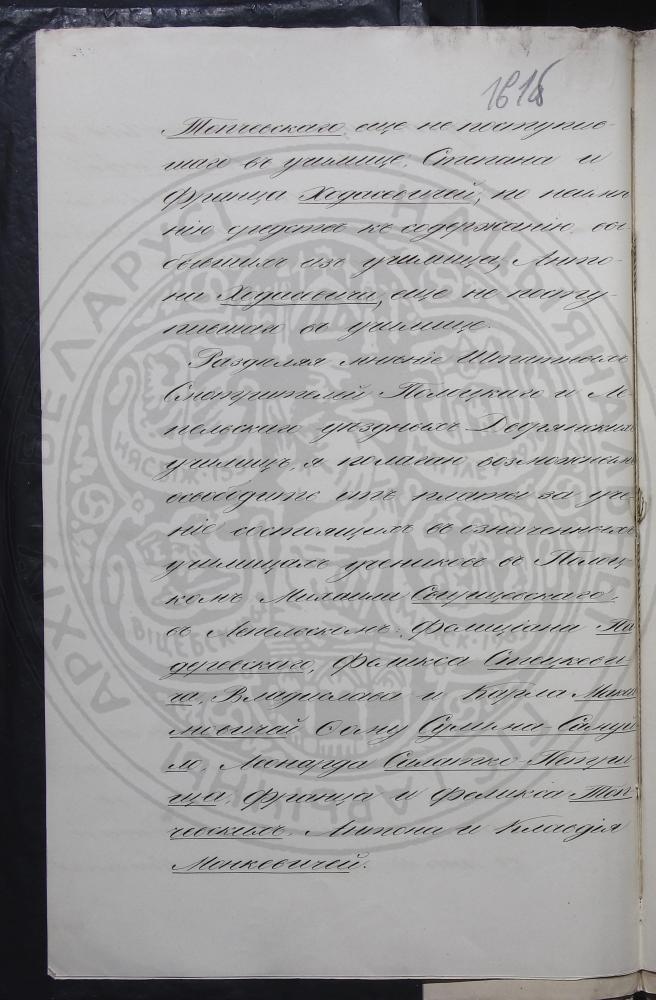 1616
Топчевскаго еще не поступив-
шаго въ училище; Степана и
Франца Ходасевичей, по неимѣ-
нію средствъ къ содержанію, вы-
бывшихъ изъ училища, Анто-
на Ходасевича, еще не посту-
пившаго въ училище.
Раздѣляя мнѣніе Штатныхъ
Смотрителей Полоцкаго и Ле-
пельскаго уѣздныхъ Дворянскихъ
училищъ, я полагаю возможнымъ
освободить отъ платы за уче-
ніе состоящихъ въ означенныхъ
училищахъ учениковъ въ Полоц-
комъ Михаила
въ Лепельскомъ: Фелиціана
Феликса Стецкеви-
ча, Владислава и Карла
Осипу Сулима-Самуй-
ло, Леонарда
Франца и Феликса Топ-
чевскихъ, Антона и Клавдія
Манкевичей.
АРХІЎ БЕЛАРУСІ
НАЦЫЯНАЛЬНЫ
ГІСТАРЫЧНЫ